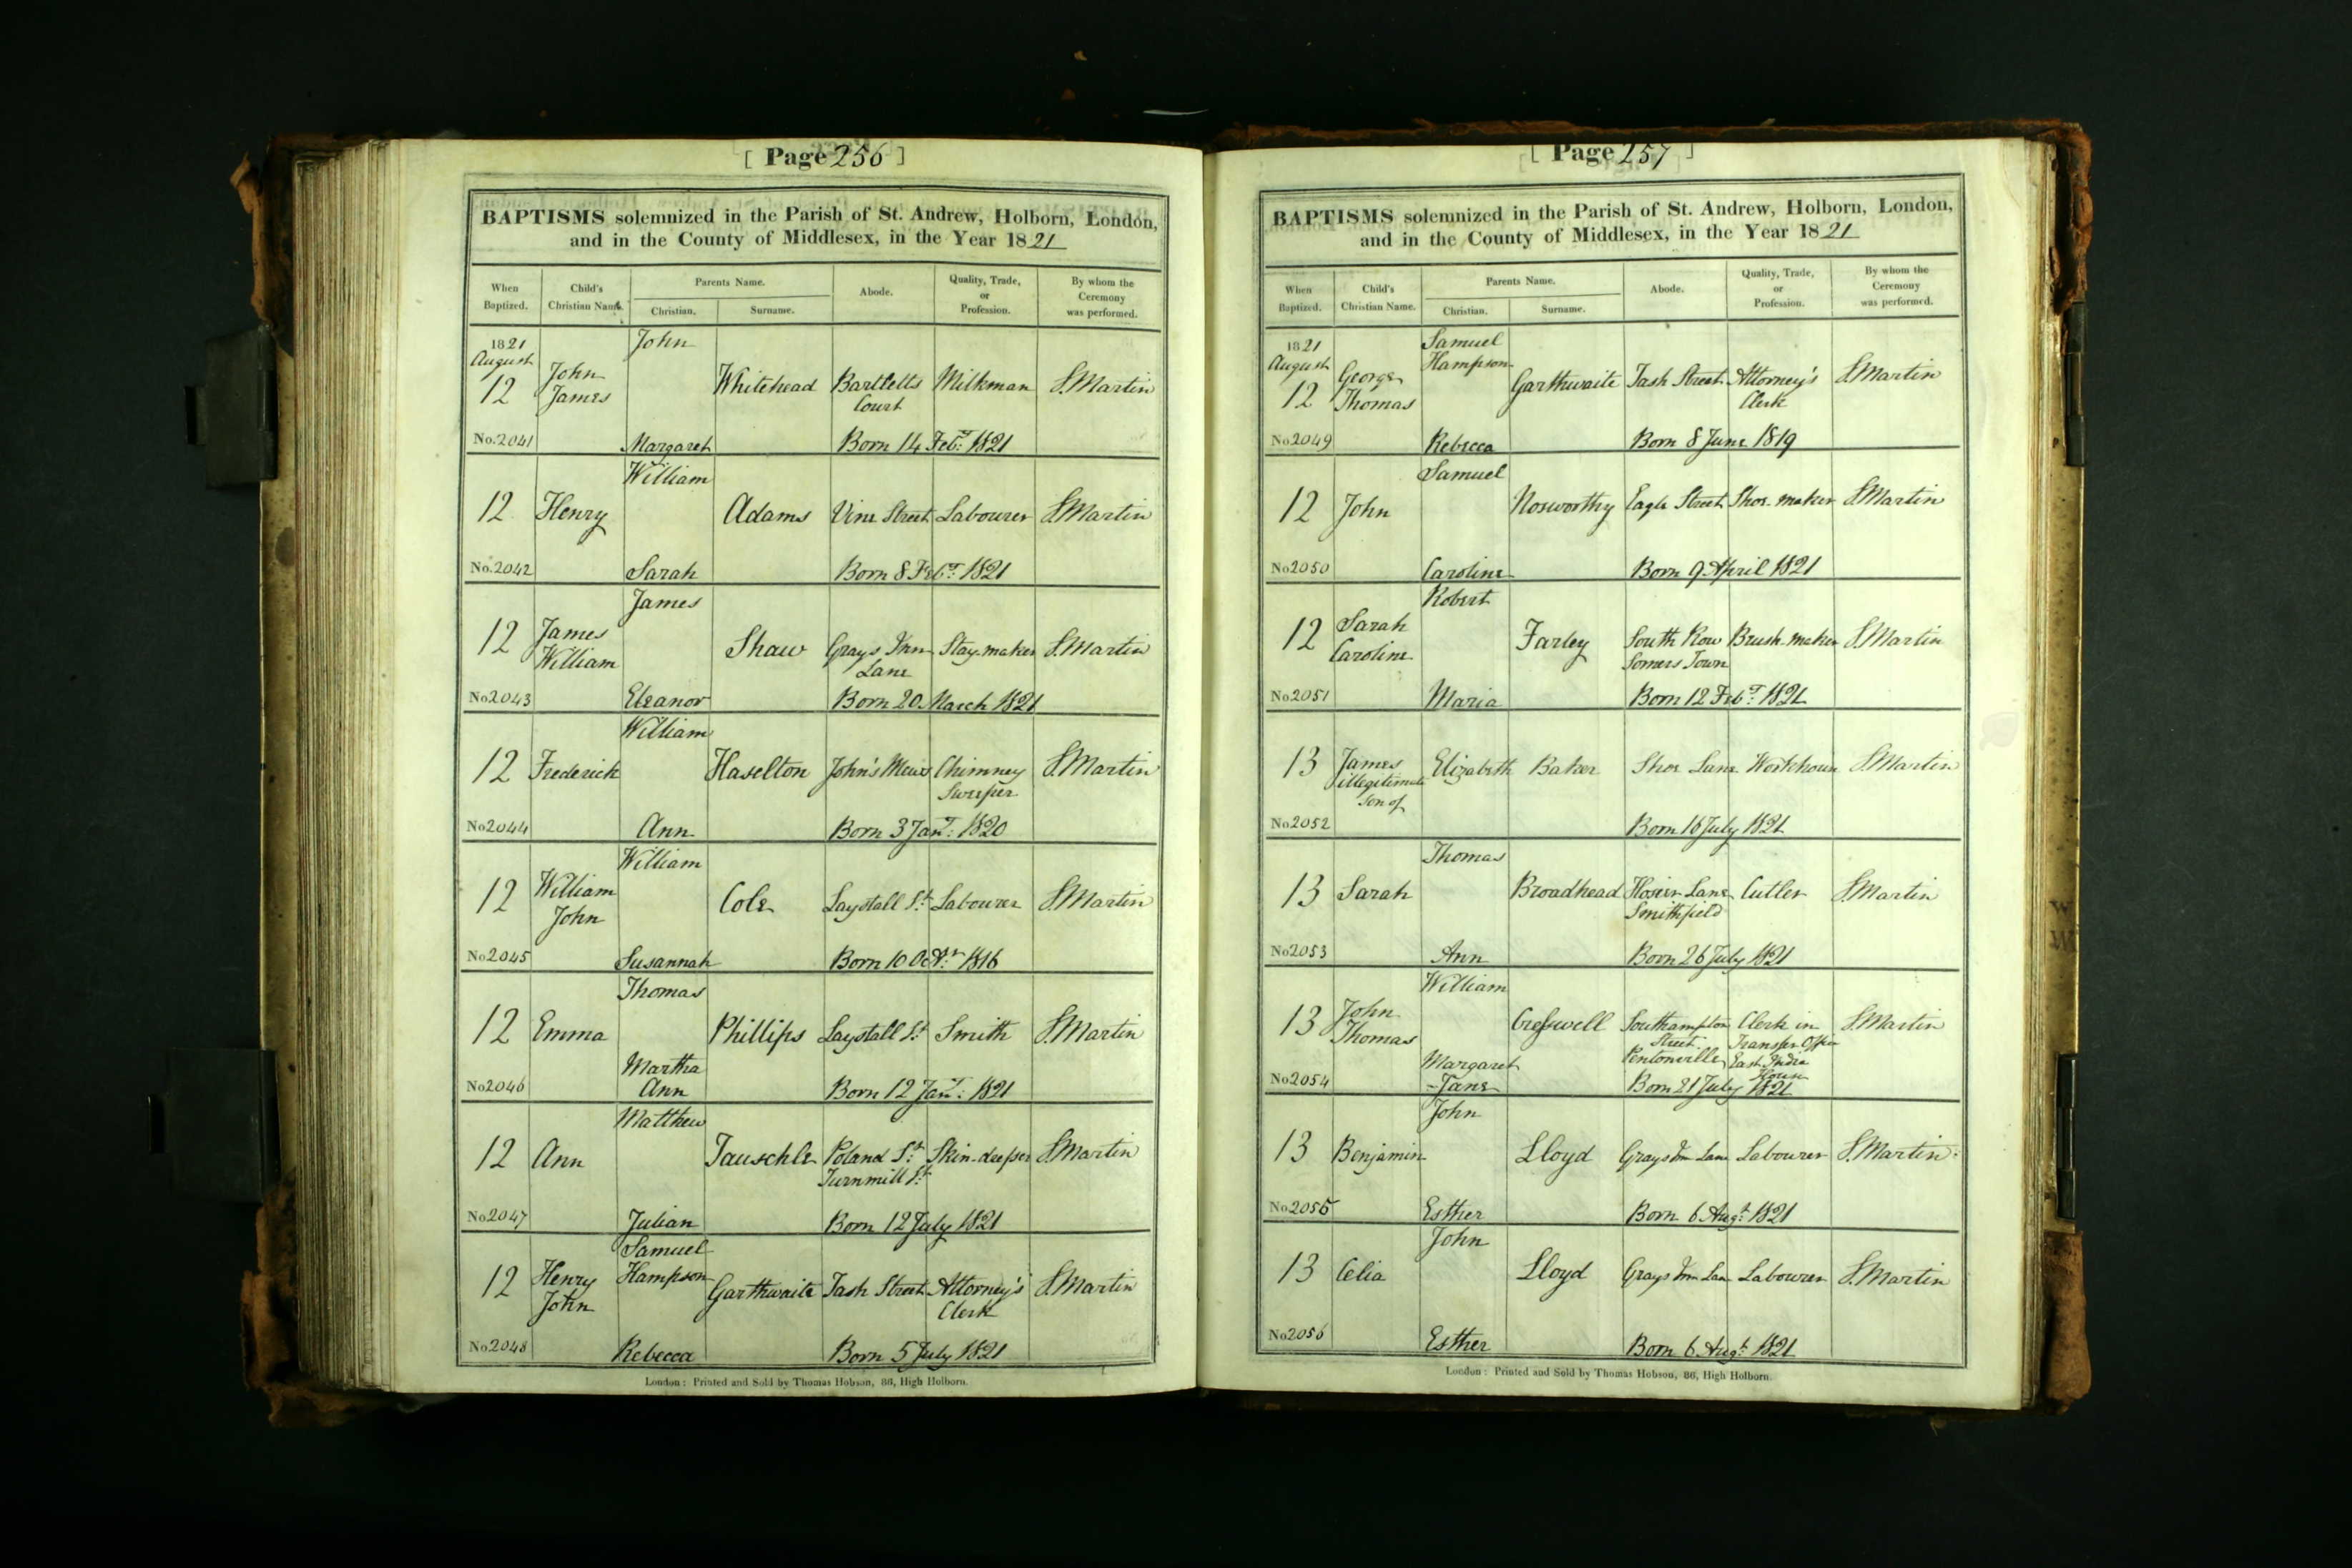 [ Page 256 ]
BAPTISMS solemnized in the Parish of St. Andrew, Holborn, London,
and in the County of Middlesex, in the Year 1821
When Baptized. Child's Christian Name. Parents Name. Christian. Surname. Abode. Quality, Trade, or Profession. By whom the Ceremony was performed.
1821
August
12 John James John Whitehead Bartletts Court Milkman S. Martin
No. 2041 Margaret Born 14 Feby. 1821
William
12 Henry Adams Vine Street Labourer S. Martin
No. 2042 Sarah Born 8 Feby. 1821
James
12 James William Shaw Grays Inn Lane Stay-maker S. Martin
No 2043 Eleanor Born 20 March 1821
William
12 Frederick Haselton John's Mews Chimney Sweeper S. Martin
No 2044 Ann Born 3 Jany. 1820
William
12 William John Cole Laystall St. Labourer S. Martin
No 2045 Susannah Born 10 Octr. 1816
Thomas
12 Emma Phillips Laystall St. Smith S. Martin
No 2046 Martha Ann Born 12 Jany. 1821
Matthew
12 Ann Tauschle Poland St. Turnmill St. Skin-dresser S. Martin
No 2047 Julian Born 12 July 1821
Samuel Hampson
12 Henry John Garthwaite Tash Street Attorney's Clerk S. Martin
No 2048 Rebecca Born 5 July 1821
London: Printed and Sold by Thomas Hobson, 86, High Holborn.
[ Page 257 ]
BAPTISMS solemnized in the Parish of St. Andrew, Holborn, London,
and in the County of Middlesex, in the Year 1821
When Baptized. Child's Christian Name. Parents Name. Christian. Surname. Abode. Quality, Trade, or Profession. By whom the Ceremony was performed.
1821
August
12 George Thomas Samuel Hampson Garthwaite Tash Street Attorney's Clerk S. Martin
No 2049 Rebecca Born 8 June 1819
Samuel
12 John Nosworthy Eagle Street Shoe-maker S. Martin
No 2050 Caroline Born 9 April 1821
Robert
12 Sarah Caroline Farley South Row Somers Town Brush-maker S. Martin
No 2051 Maria Born 12 Feby. 1821
13 James illegitimate son of Elizabeth Baker Shoe Lane Workhouse S. Martin
No 2052 Born 16 July 1821
Thomas
13 Sarah Broadhead Hosier Lane Smithfield Cutler S. Martin
No 2053 Ann Born 26 July 1821
William
13 John Thomas Creswell Southampton Street Pentonville Clerk in Transfer Office East India House S. Martin
No 2054 Margaret -Jane Born 21 July 1821
John
13 Benjamin Lloyd Grays Inn Lane Labourer S. Martin
No 2055 Esther Born 6 Augt. 1821
John
13 Celia Lloyd Grays Inn Lane Labourer S. Martin
No 2056 Esther Born 6 Augt. 1821
London: Printed and Sold by Thomas Hobson, 86, High Holborn.